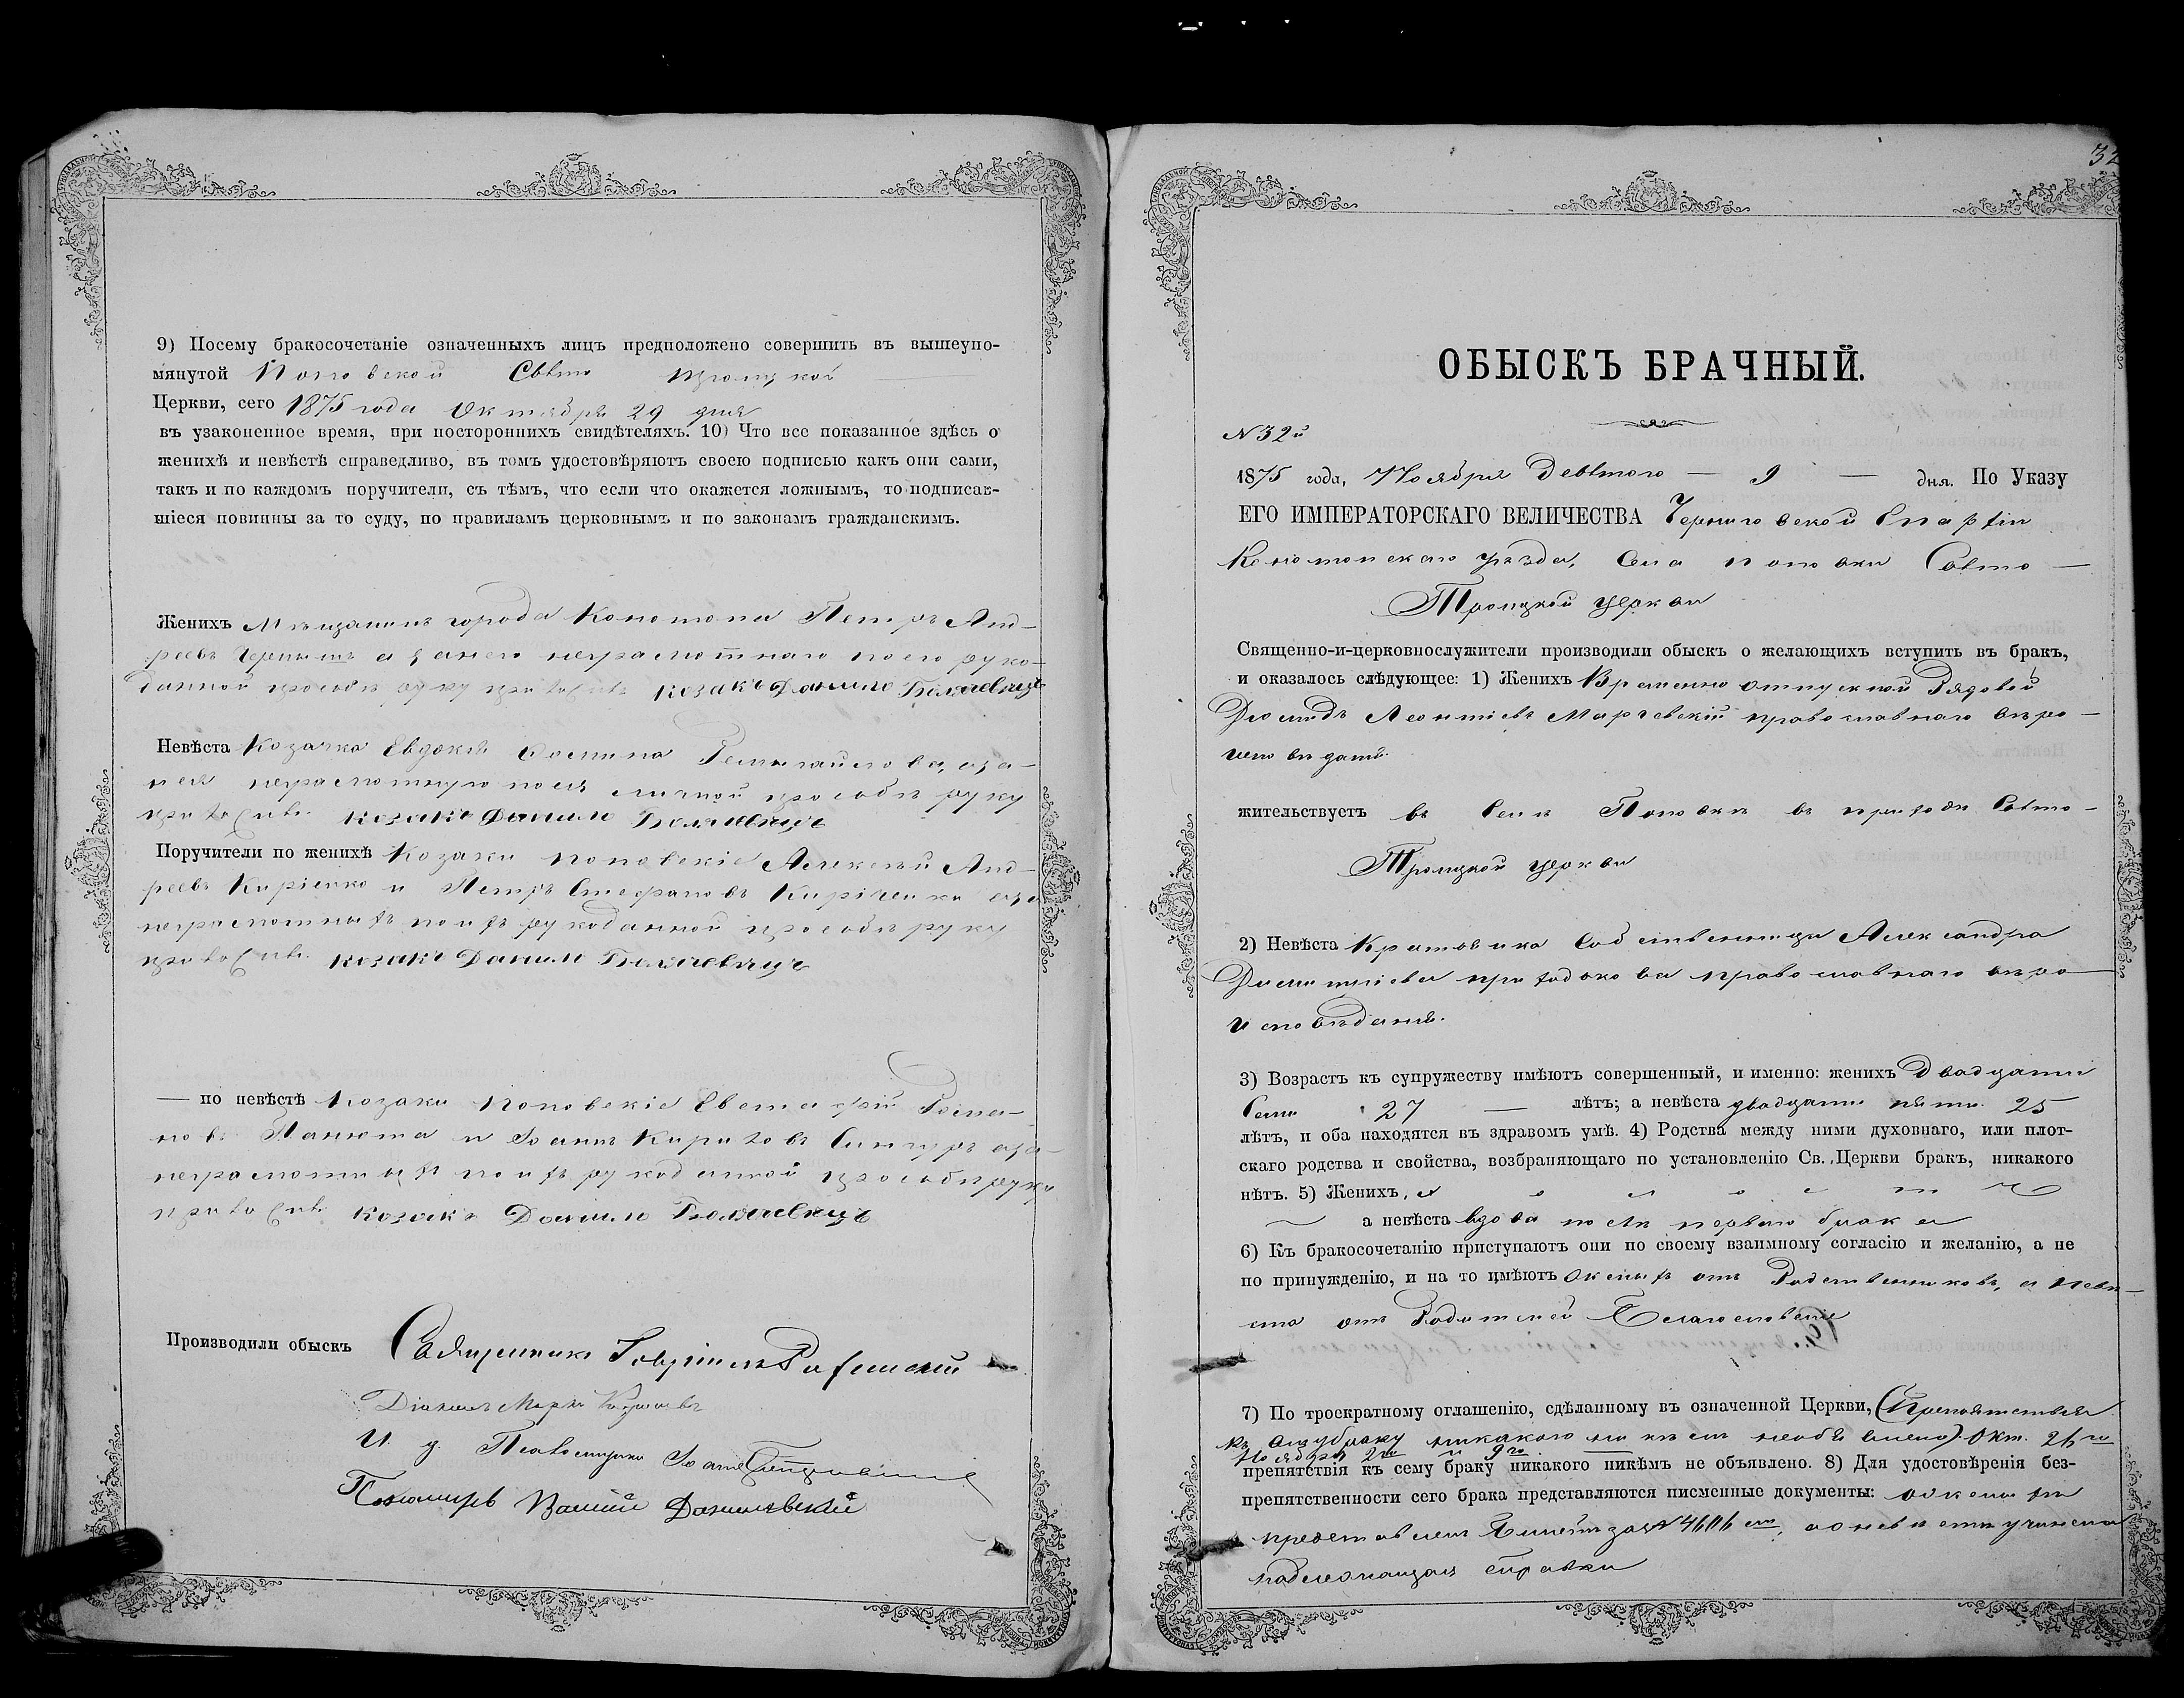 9) Посему бракосочетаніе означенныхъ лицъ предположено совершить въ вышеупо-
мянутой Поповской Свято Троицкой
Церкви, сего 1875 года Октября 29 дня
въ узаконенное время, при постороннихъ свидѣтеляхъ. 10) Что все показанное здѣсь о
женихѣ и невѣстѣ справедливо, въ томъ удостовѣряютъ своею подписью какъ они сами,
такъ и по каждомъ поручители, съ тѣмъ, что если что окажется ложнымъ, то подписав-
шіеся повинны за то суду, по правиламъ церковнымъ и по законамъ гражданскимъ.
Женихъ Мѣщанинъ города Конотопа Петръ Анд-
реевъ а за него неграмотнаго по его руко-
данной прозьбѣ руку приложилъ козакъ Данило
Невѣста Козачка Евдокія
нея неграмотную по ея личной прозьбѣ руку
приложилъ козакъ Данило
Поручители по женихѣ Козаки Поповскіе Алексѣй Анд-
реевъ Кириенко и Петръ Стефановъ Кириченко а за
неграмотныхъ по ихъ рукоданной прозьбѣ руку
приложилъ козакъ Данило
— по невѣстѣ Козаки Поповскіе Евстафій Рома-
новъ Панюта и Іоаннъ Кириловъ а за
неграмотныхъ по ихъ рукоданной прозьбѣ руку
приложилъ козакъ Данило
Производили обыскъ Священникъ Гавріилъ
Діаконъ Марко
И. д. Псаломщика Іоаннъ
Пономарь Василій Данилевскій
32
ОБЫСКЪ БРАЧНЫЙ.
N 32й
1875 года, Ноября Девятого — 9 — дня. По Указу
ЕГО ИМПЕРАТОРСКАГО ВЕЛИЧЕСТВА Черниговской Епархіи
Конотопскаго уѣзда, Села Поповки Свято —
Троицкой церкви
Священно-и-церковнослужители производили обыскъ о желающихъ вступить въ бракъ,
и оказалось слѣдующее: 1) Женихъ Временно отпускной Рядовой
Леонтіевъ Марчевскій православнаго вѣро —
жительствуетъ въ селѣ Поповкѣ въ приходѣ Свято —
Троицкой церкви
2) Невѣста Крестьянка Собственница Александра
Димитріева Приходкова православнаго вѣро —
исповѣданія.
3) Возрастъ къ супружеству имѣютъ совершенный, и именно: женихъ двадцати
семи 27 — лѣтъ; а невѣста двадцати пяти 25
лѣтъ, и оба находятся въ здравомъ умѣ. 4) Родства между ними духовнаго, или плот-
скаго родства и свойства, возбраняющаго по установленію Св. Церкви бракъ, никакого
нѣтъ. 5) Женихъ, холостъ
а невѣста вдова послѣ перваго брака
6) Къ бракосочетанію приступаютъ они по своему взаимному согласію и желанію, а не
по принужденію, и на то имѣютъ женихъ отъ Родственниковъ, а невѣ-
ста отъ Родителей Благословеніе
7) По троекратному оглашенію, сдѣланному въ означенной Церкви, (Препятствія
къ браку никакого ни кѣмъ необъявлено) Окт. 26го
Ноября 2го и 9го
препятствія къ сему браку никакого никѣмъ не объявлено. 8) Для удостовѣренія без-
препятственности сего брака представляются писменные документы: о женихѣ
представленъ билетъ за N 4606 а о невѣстѣ учинена
надлежащая справка